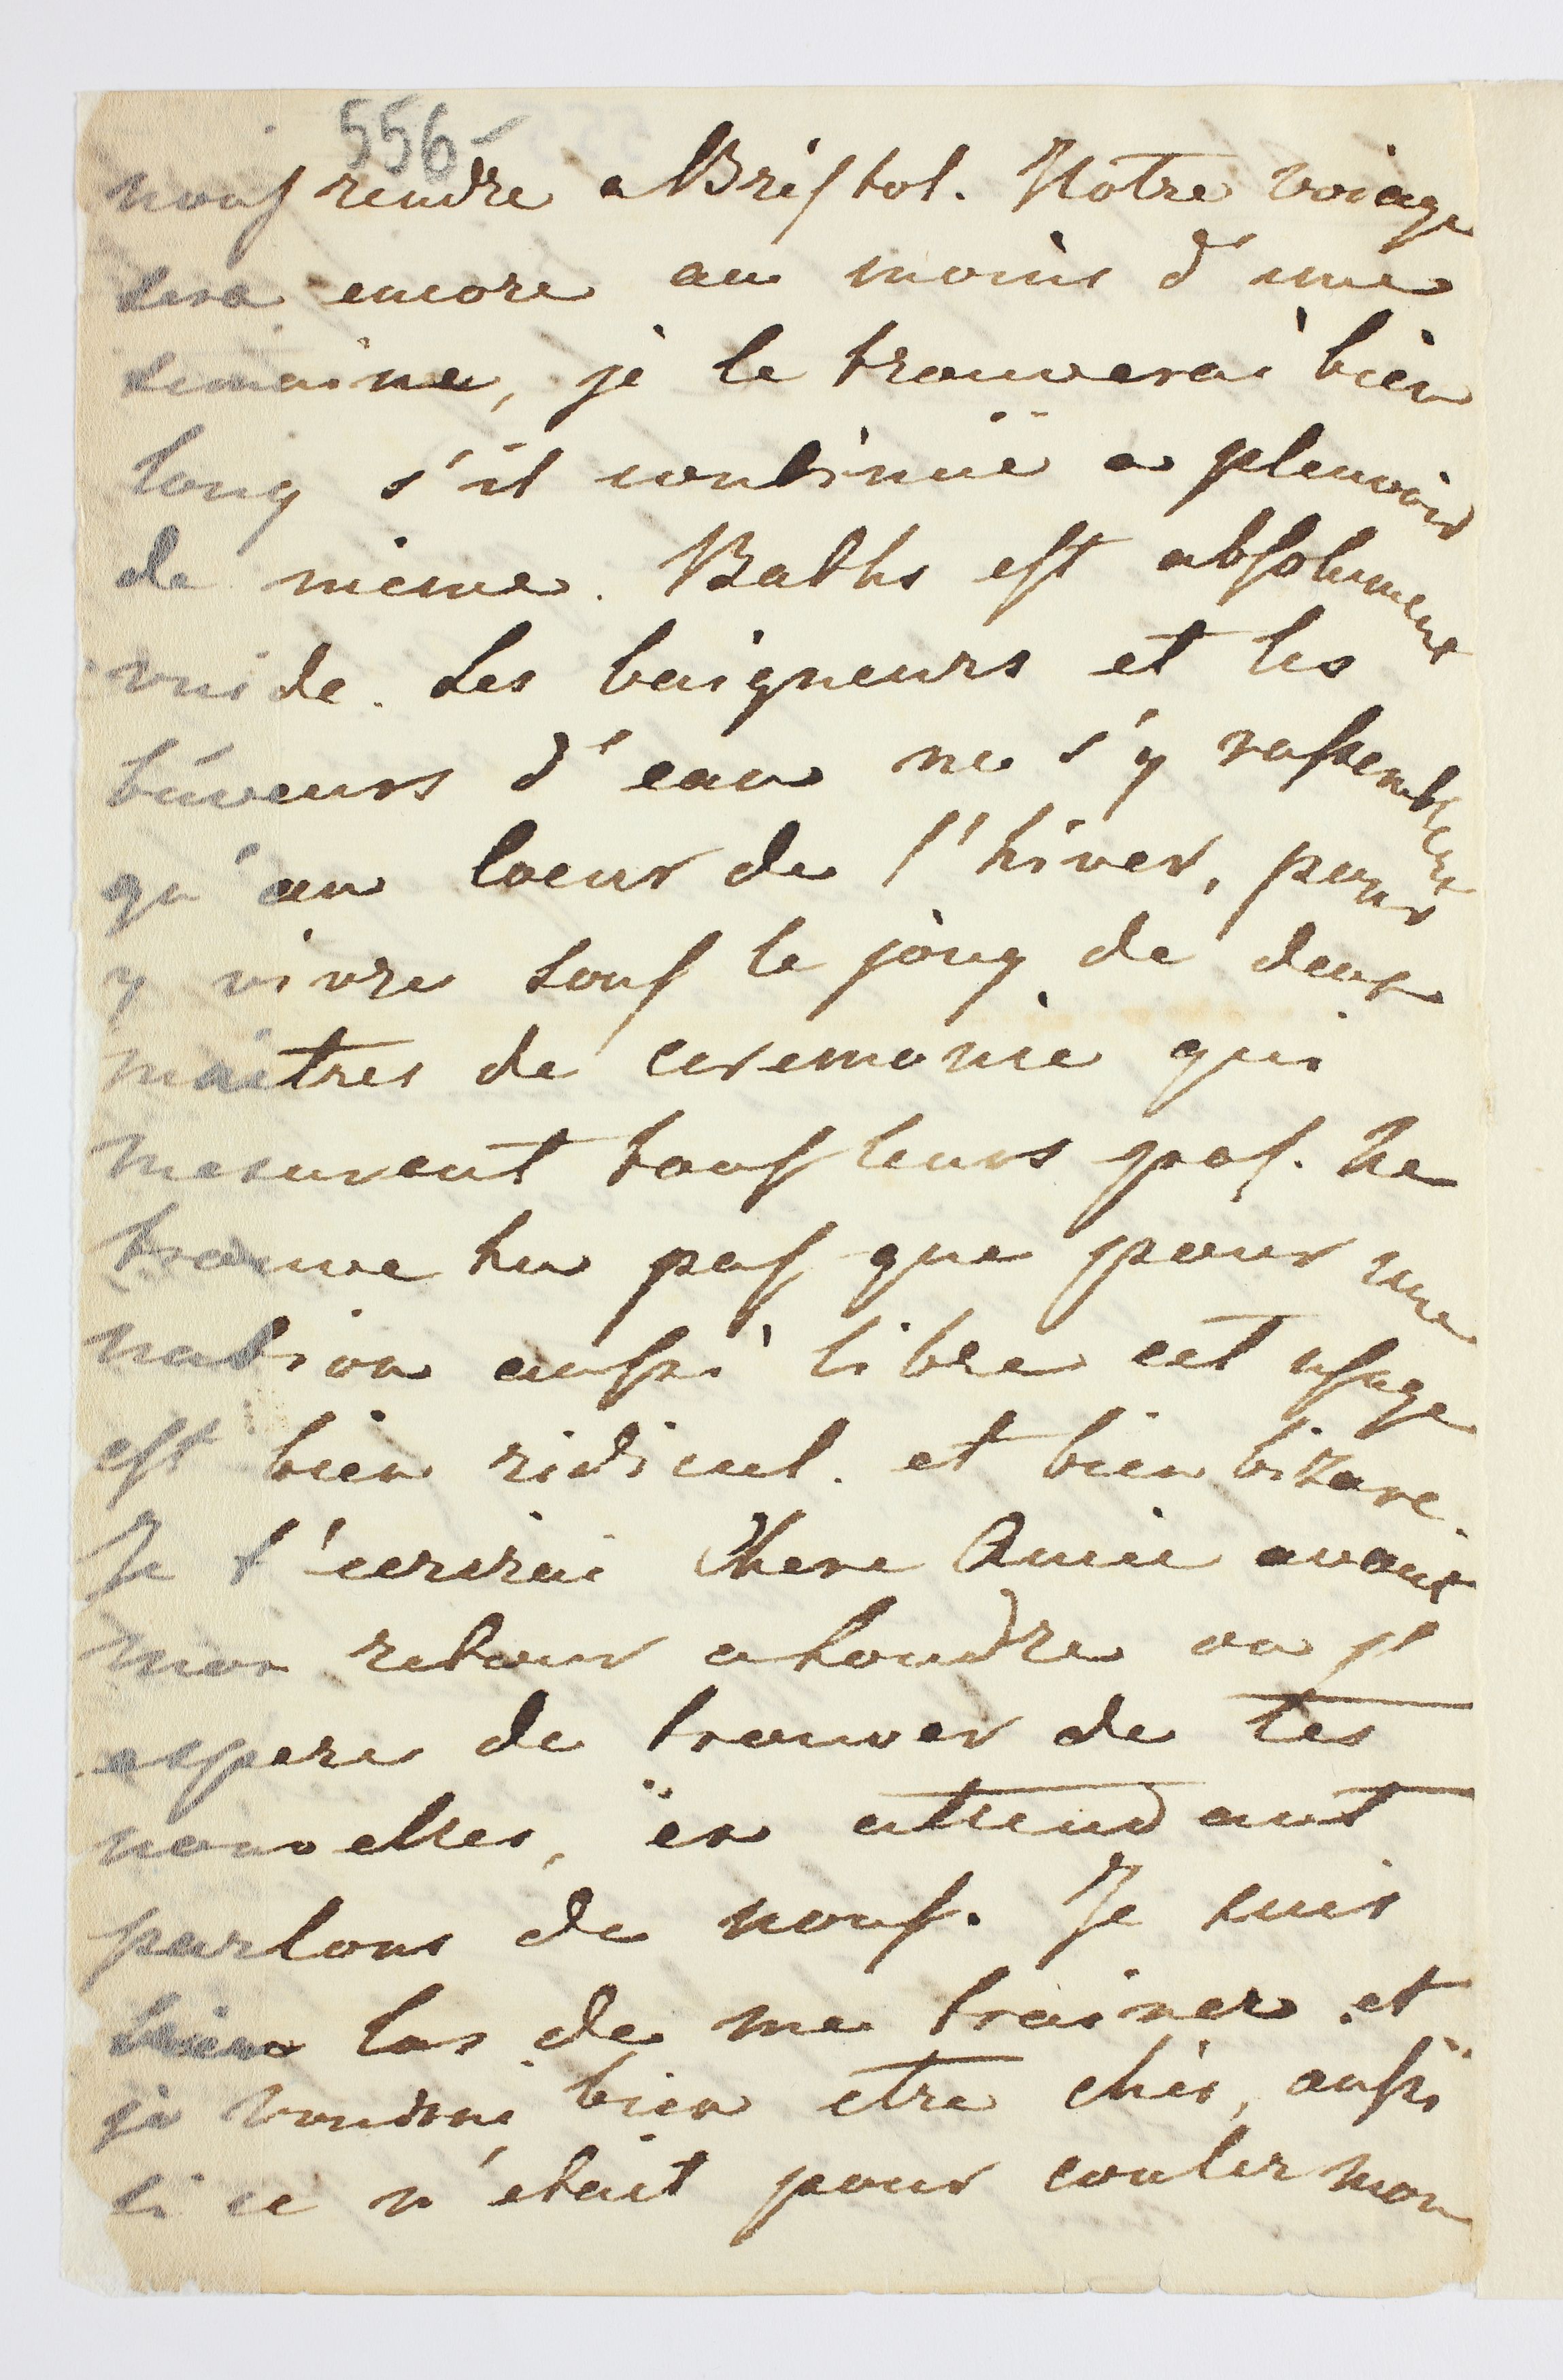 556-
nous rendre a Bristol. Notre voiage
sera encore au moins d'une
semaine, je le trouverai bien
long s'il continuë a pleuvoir
de même. Baths est absolument
vuide. Les baigneurs et les
bûveurs d'eau ne s'y rassemblent
qu'au coeur de l'hiver, pour
y vivre sous le joug de deux
maitres de ceremonie qui
mesurent tous leurs pas. Ne
trouve tu pas que pour une
nation aussi libre cet usage
est bien ridicul. et bien bizare.
Je t'ecrirai Chere Amie avant
mon retour a Londre ou j'
espere de trouver de tes
nouvelles, en attendant
parlons de nous. Je suis
bien las de me trainer et
je voudrai bien etre chés, aussi
si ce n'etait pour conter mon